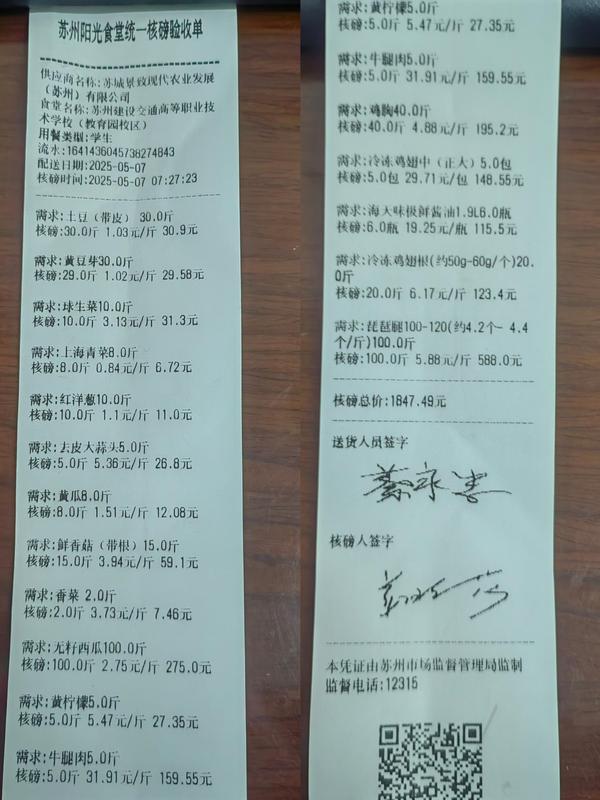 苏州阳光食堂统一核磅验收单
供应商名称:苏城景致现代农业发展
（苏州）有限公司
食堂名称:苏州建设交通高等职业技
术学校（教育园校区）
用餐类型:学生
流水:1641436045738274843
配送日期:2025-05-07
核磅时间:2025-05-07 07:27:23
需求:土豆（带皮） 30.0斤
核磅:30.0斤 1.03元/斤 30.9元
需求:黄豆芽30.0斤
核磅:29.0斤 1.02元/斤 29.58元
需求:球生菜10.0斤
核磅:10.0斤 3.13元/斤 31.3元
需求:上海青菜8.0斤
核磅:8.0斤 0.84元/斤 6.72元
需求:红洋葱10.0斤
核磅:10.0斤 1.1元/斤 11.0元
需求:去皮大蒜头5.0斤
核磅:5.0斤 5.36元/斤 26.8元
需求:黄瓜8.0斤
核磅:8.0斤 1.51元/斤 12.08元
需求:鲜香菇（带根）15.0斤
核磅:15.0斤 3.94元/斤 59.1元
需求:香菜 2.0斤
核磅:2.0斤 3.73元/斤 7.46元
需求:无籽西瓜100.0斤
核磅:100.0斤 2.75元/斤 275.0元
需求:黄柠檬5.0斤
核磅:5.0斤 5.47元/斤 27.35元
需求:牛腿肉5.0斤
核磅:5.0斤 31.91元/斤 159.55元
需求:黄柠檬5.0斤
核磅:5.0斤 5.47元/斤 27.35元
需求:牛腿肉5.0斤
核磅:5.0斤 31.91元/斤 159.55元
需求:鸡胸40.0斤
核磅:40.0斤 4.88元/斤 195.2元
需求:冷冻鸡翅中（正大）5.0包
核磅:5.0包 29.71元/包 148.55元
需求:海天味极鲜酱油1.9L6.0瓶
核磅:6.0瓶 19.25元/瓶 115.5元
需求:冷冻鸡翅根(约50g-60g/个)20.
0斤
核磅:20.0斤 6.17元/斤 123.4元
需求:琵琶腿100-120(约4.2个- 4.4
个/斤)100.0斤
核磅:100.0斤 5.88元/斤 588.0元
核磅总价:1847.49元
送货人员签字
核磅人签字
本凭证由苏州市场监督管理局监制
监督电话:12315